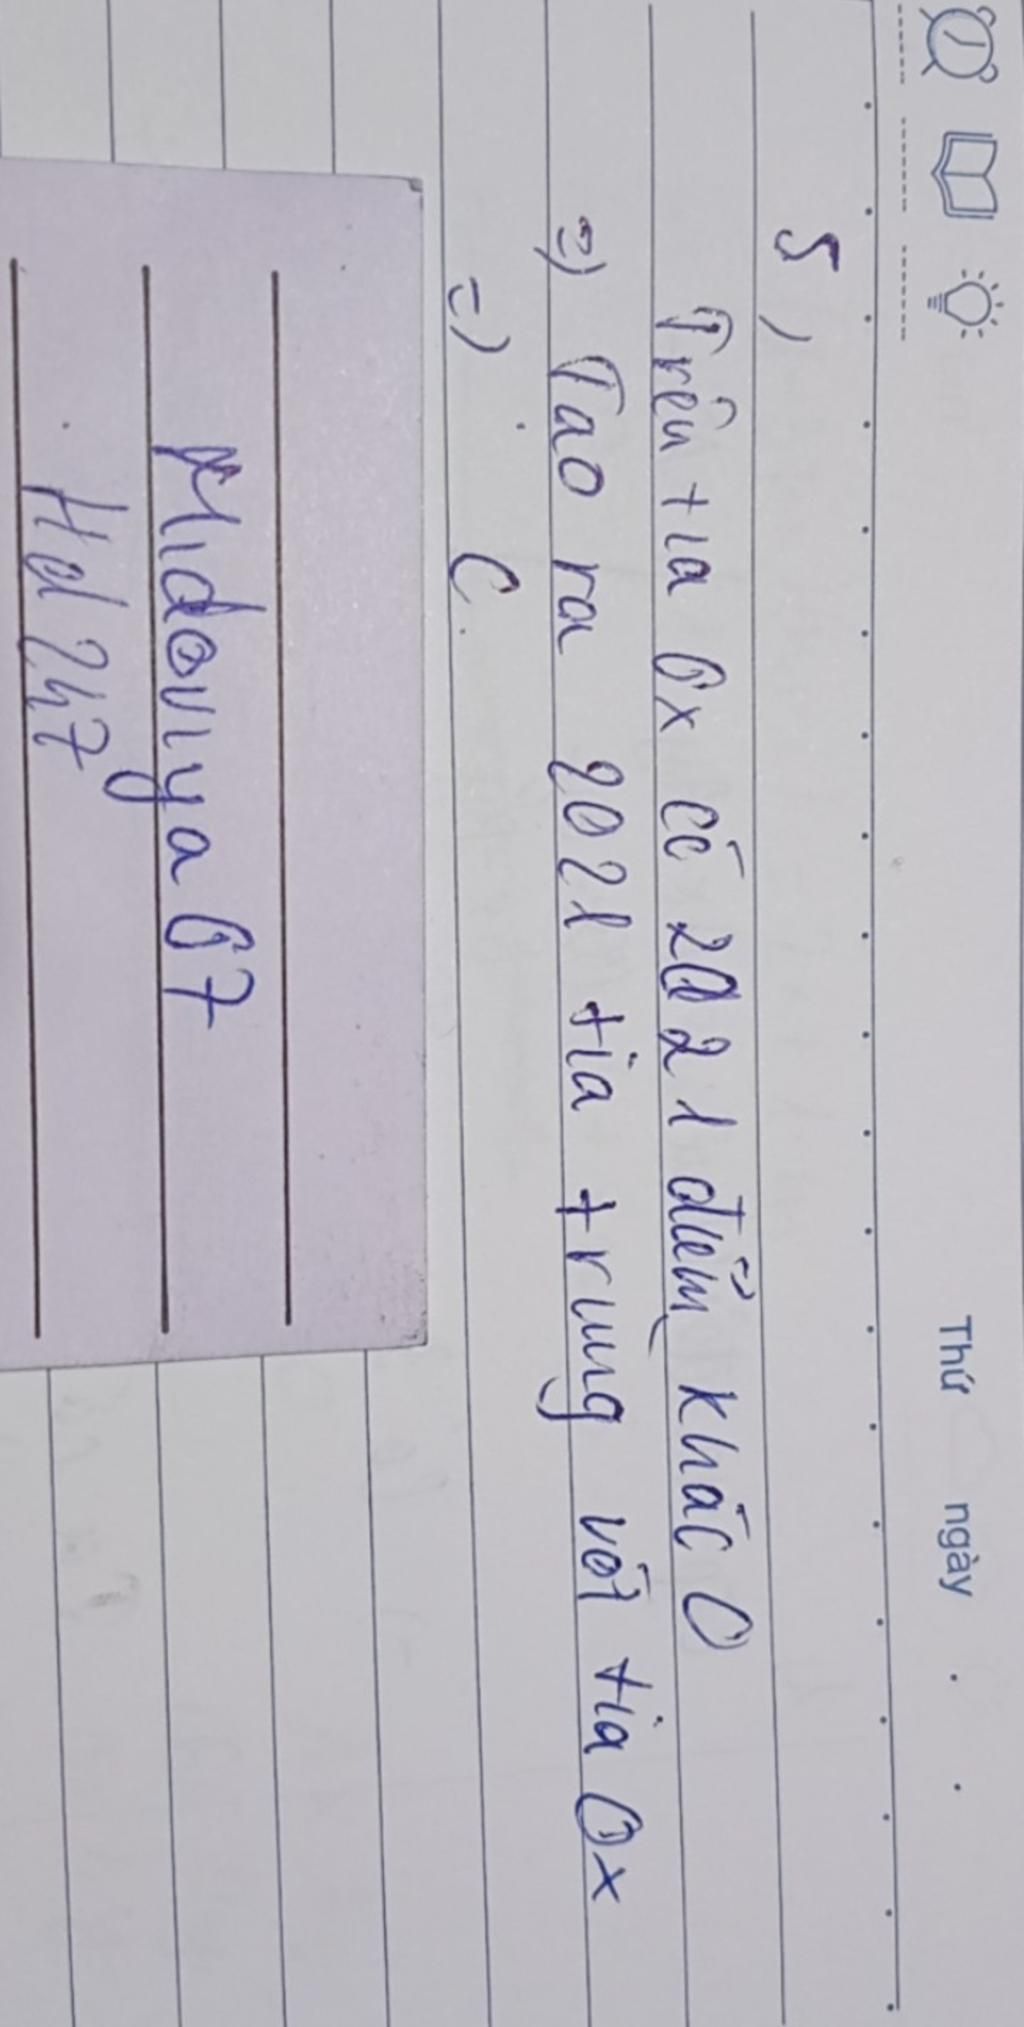 Thứ ngày
5,
Trên tia Ox có 2021 điểm khác O
=) Tạo ra 2021 tia trùng với tia Ox
=) C.
Midoviya07
Hd 247